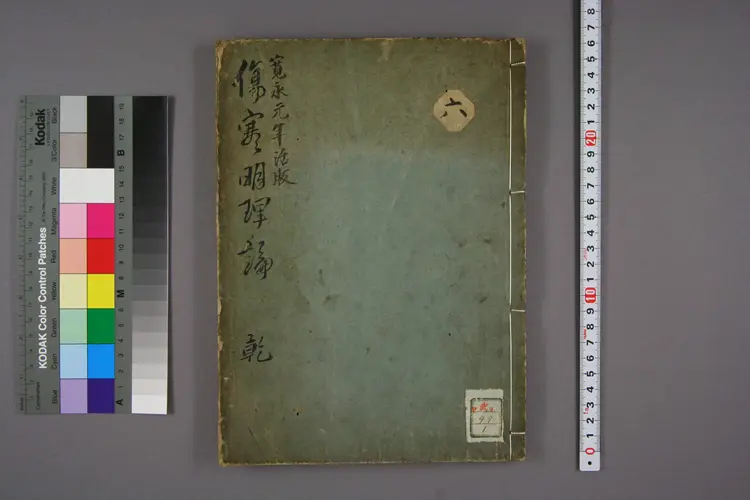 寛永元年活版
傷寒明理論 乾
六
98
1
Kodak
KODAK Color Control Patches
Black
3/Color
White
Magenta
Red
Yellow
Green
Cyan
Blue
A 1 2 3 4 5 6 M 8 9 10 11 12 13 14 15 B 17 18 19
8 7 6 5 4 3 2 1 20 9 8 7 6 5 4 3 2 1 10 9 8 7 6 5 4 3 2 1 0